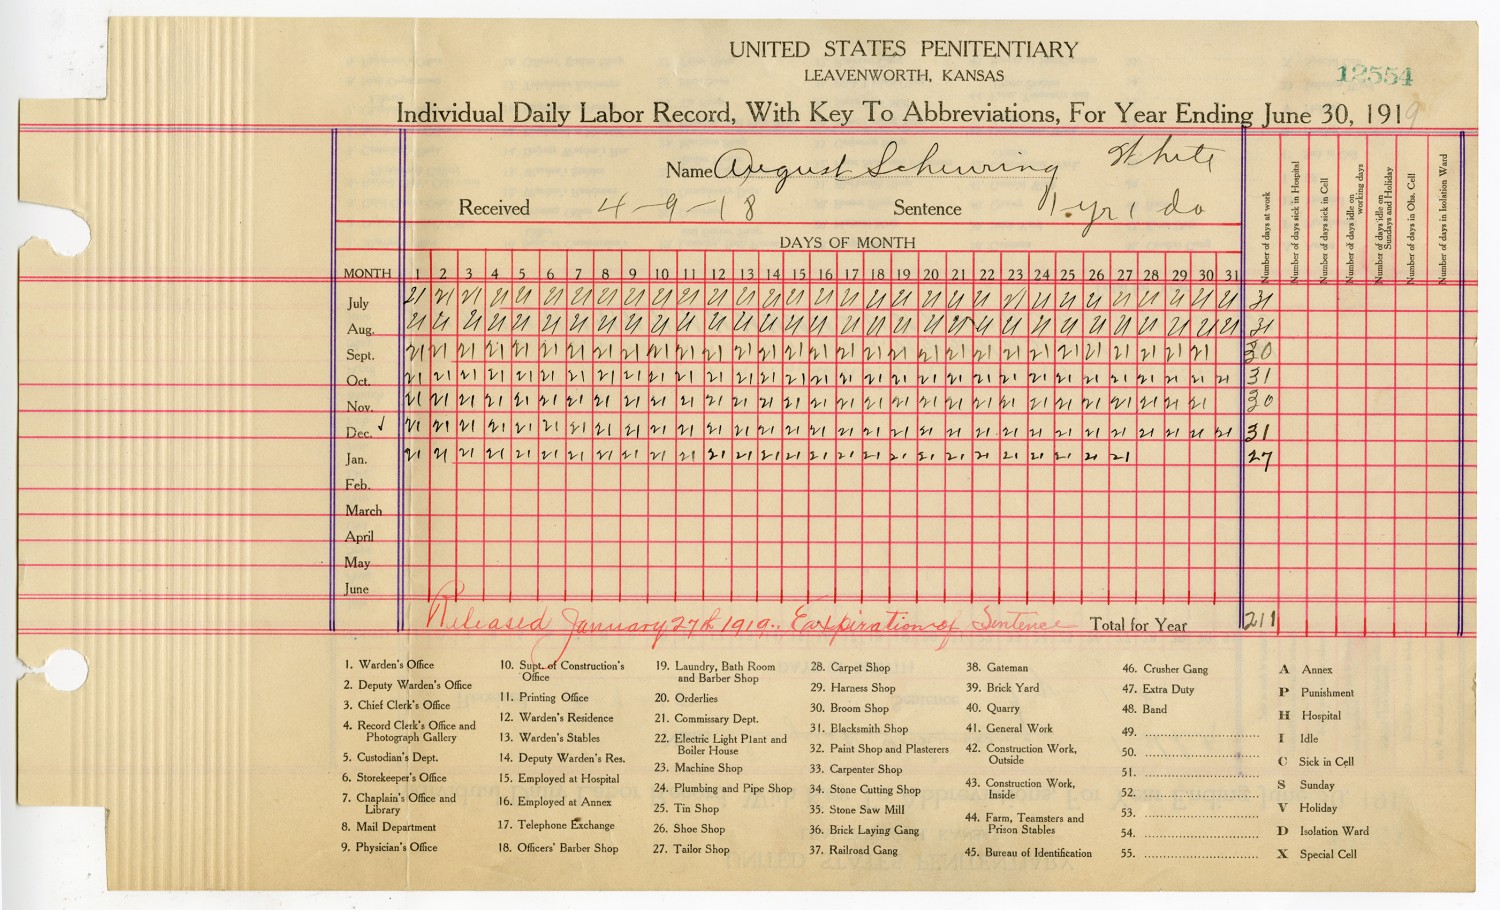 UNITED STATES PENITENTIARY
LEAVENWORTH, KANSAS
12554
Individual Daily Labor Record, With Key To Abbreviations, For Year Ending June 30, 1919
Name August Scheuring White
Received 4-9-18 Sentence 1 yr 1 da
DAYS OF MONTH
MONTH 1 2 3 4 5 6 7 8 9 10 11 12 13 14 15 16 17 18 19 20 21 22 23 24 25 26 27 28 29 30 31 Number of days at work Number of days sick in Hospital Number of days sick in Cell Number of days idle on working days Number of days idle on Sundays and Holiday Number of days in Obs. Cell Number of days in Isolation Ward
July 21 21 21 21 21 21 21 21 21 21 21 21 21 21 21 21 21 21 21 21 21 21 21 21 21 21 21 21 21 21 21 31
Aug. 21 21 21 21 21 21 21 21 21 21 21 21 21 21 21 21 21 21 21 21 21 21 21 21 21 21 21 21 21 21 21 31
Sept. 21 21 21 21 21 21 21 21 21 21 21 21 21 21 21 21 21 21 21 21 21 21 21 21 21 21 21 21 21 21 30
Oct. 21 21 21 21 21 21 21 21 21 21 21 21 21 21 21 21 21 21 21 21 21 21 21 21 21 21 21 21 21 21 21 31
Nov. 21 21 21 21 21 21 21 21 21 21 21 21 21 21 21 21 21 21 21 21 21 21 21 21 21 21 21 21 21 21 30
Dec. ✓ 21 21 21 21 21 21 21 21 21 21 21 21 21 21 21 21 21 21 21 21 21 21 21 21 21 21 21 21 21 21 21 31
Jan. 21 21 21 21 21 21 21 21 21 21 21 21 21 21 21 21 21 21 21 21 21 21 21 21 21 21 21 27
Feb.
March
April
May
June
Released January 27th 1919.. Expiration of Sentence Total for Year 211
1. Warden's Office
2. Deputy Warden's Office
3. Chief Clerk's Office
4. Record Clerk's Office and
Photograph Gallery
5. Custodian's Dept.
6. Storekeeper's Office
7. Chaplain's Office and
Library
8. Mail Department
9. Physician's Office
10. Supt. of Construction's
Office
11. Printing Office
12. Warden's Residence
13. Warden's Stables
14. Deputy Warden's Res.
15. Employed at Hospital
16. Employed at Annex
17. Telephone Exchange
18. Officers' Barber Shop
19. Laundry, Bath Room
and Barber Shop
20. Orderlies
21. Commissary Dept.
22. Electric Light Plant and
Boiler House
23. Machine Shop
24. Plumbing and Pipe Shop
25. Tin Shop
26. Shoe Shop
27. Tailor Shop
28. Carpet Shop
29. Harness Shop
30. Broom Shop
31. Blacksmith Shop
32. Paint Shop and Plasterers
33. Carpenter Shop
34. Stone Cutting Shop
35. Stone Saw Mill
36. Brick Laying Gang
37. Railroad Gang
38. Gateman
39. Brick Yard
40. Quarry
41. General Work
42. Construction Work,
Outside
43. Construction Work,
Inside
44. Farm, Teamsters and
Prison Stables
45. Bureau of Identification
46. Crusher Gang
47. Extra Duty
48. Band
49.
50.
51.
52.
53.
54.
55.
A Annex
P Punishment
H Hospital
I Idle
C Sick in Cell
S Sunday
V Holiday
D Isolation Ward
X Special Cell